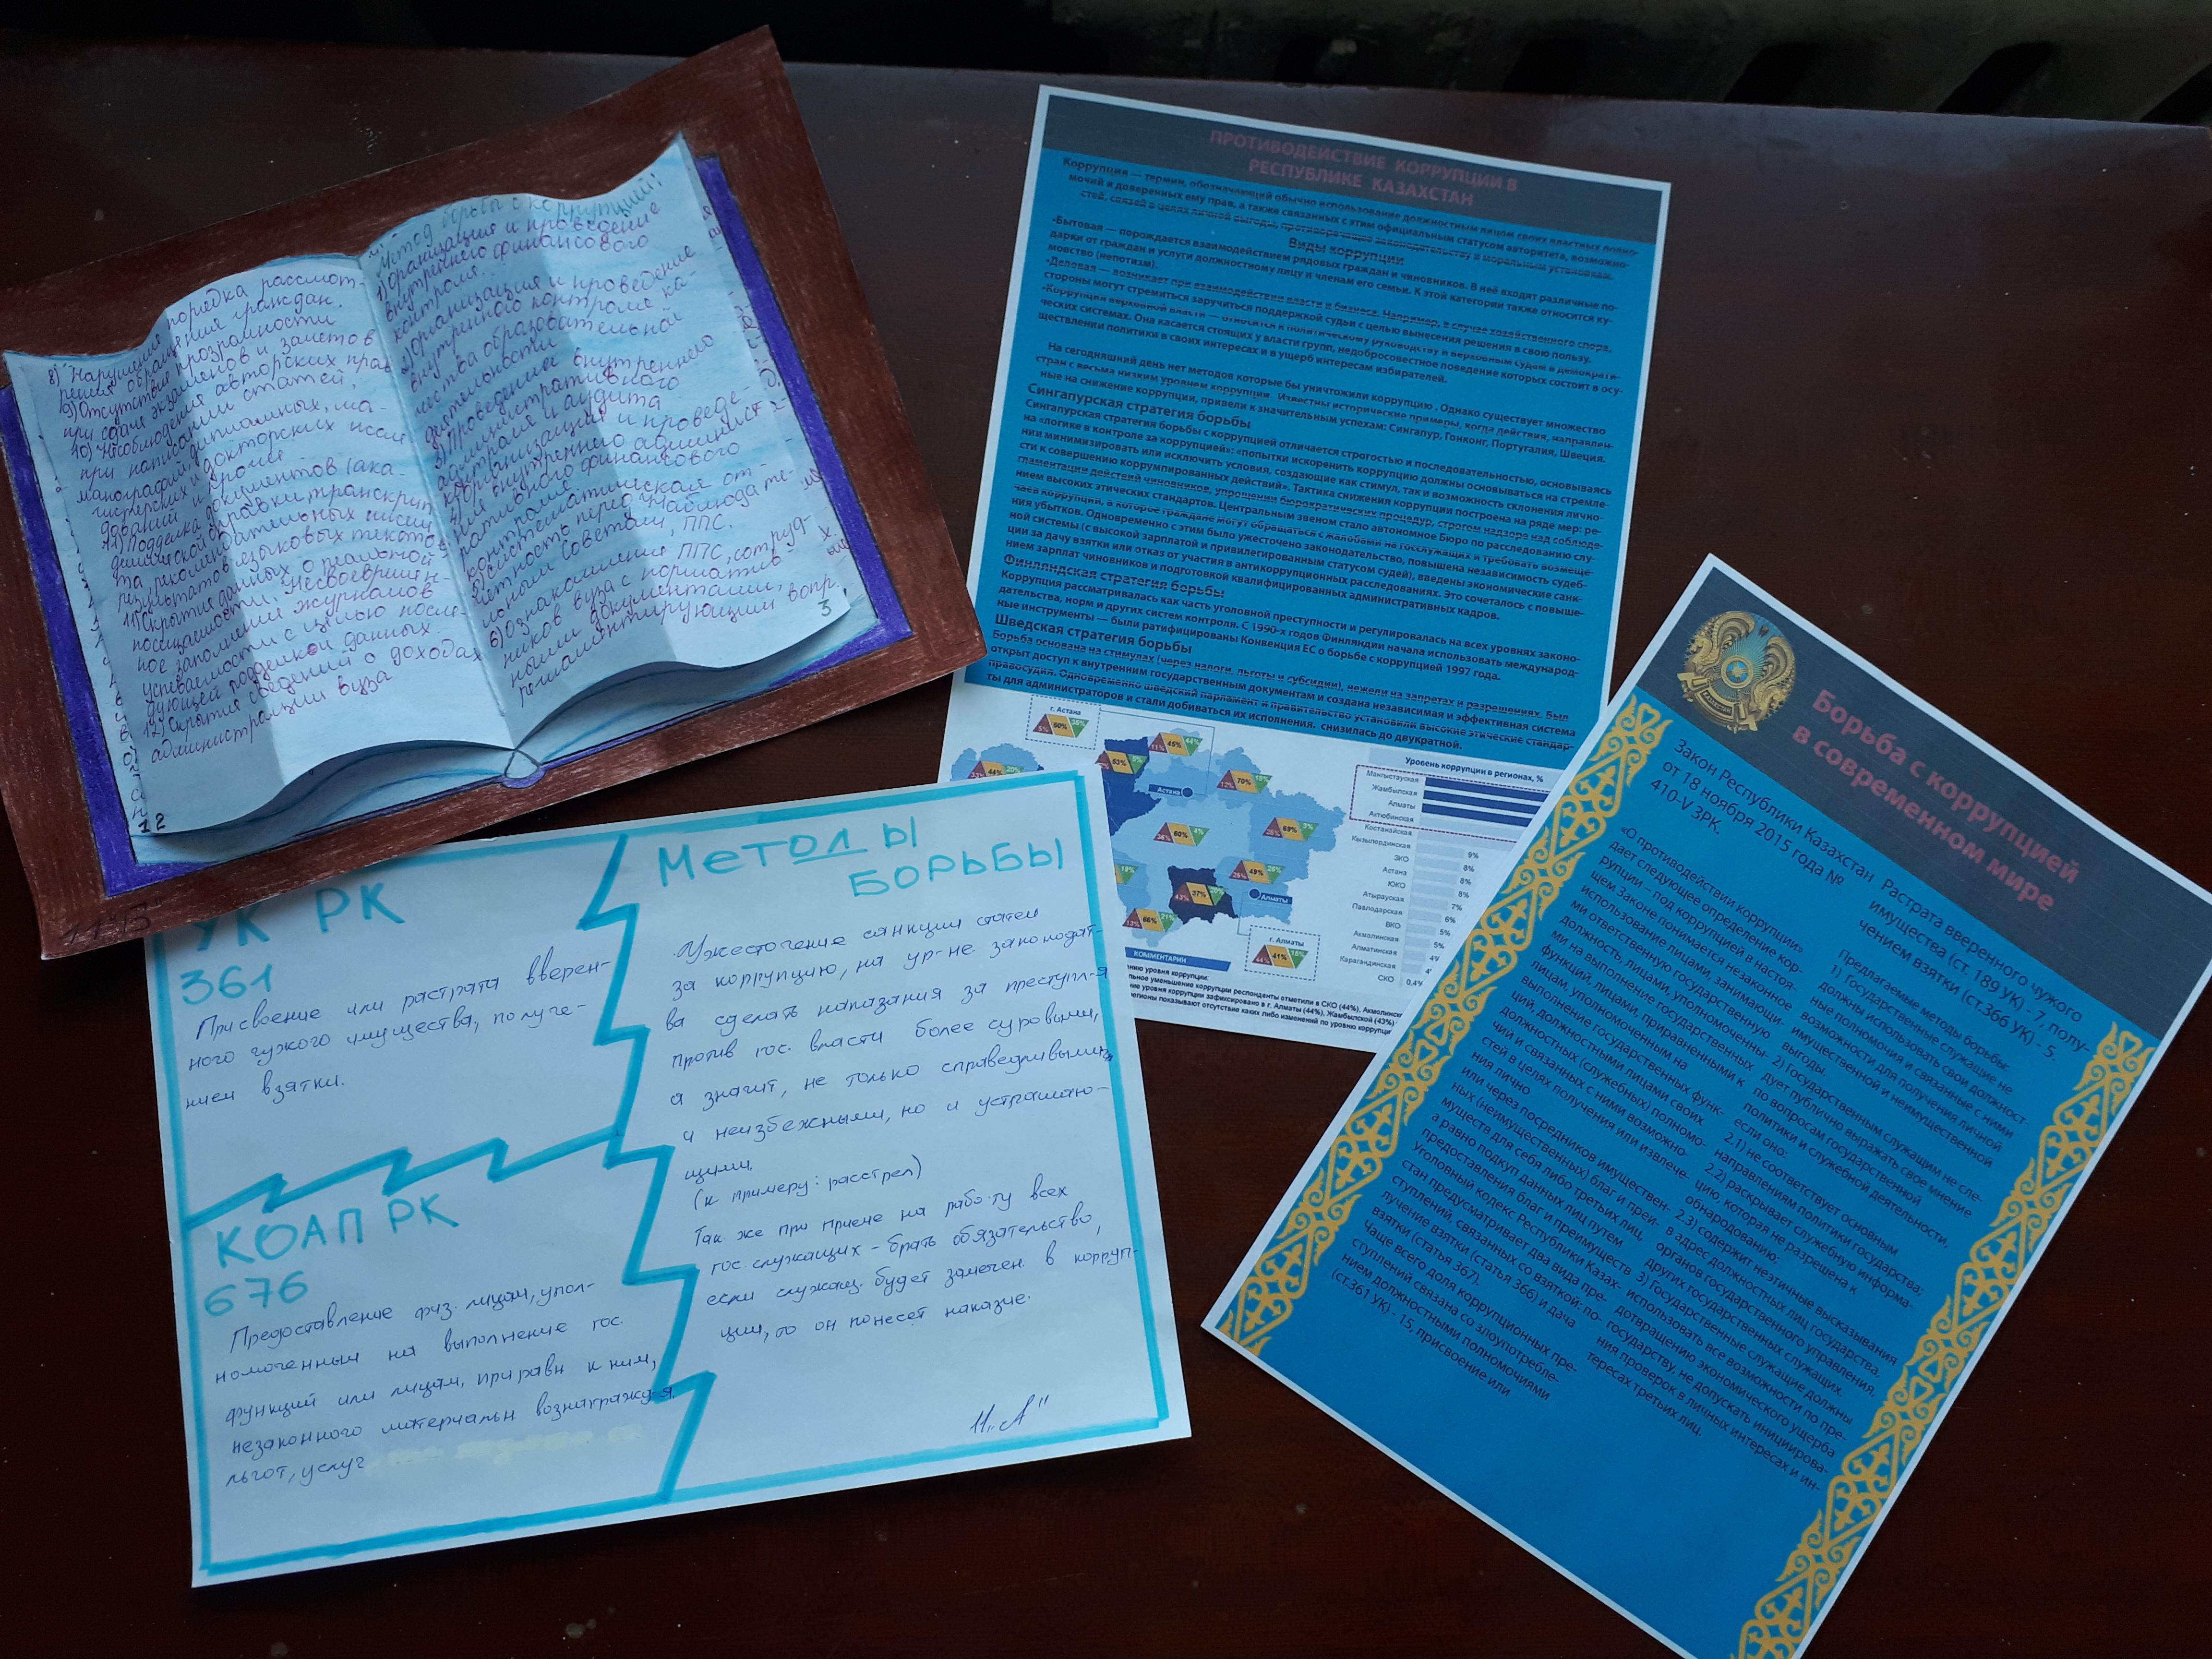 8) Нарушения порядка рассмот-
рения обращений граждан.
9) Отсутствие прозрачности
при сдаче экзаменов и зачетов
10) Несоблюдение авторских прав
при написании статей,
монографий, дипломных, ма-
гистерских и докторских иссле
дований и прочие
11) Подделка документов (ака-
демической справки, транскрип
та, рекомендательных писем
результатов языковых тестов
11) Скрытие данных о реальной
посещаемости. Несвоевремен-
ное заполнение журналов
успеваемости с целью после-
дующей подделкой данных.
12) Скрытия сведений о доходах
администрации вуза
12
Метод борьбы с коррупцией:
1) Организация и проведение
внутреннего финансового
контроля...
2) Организация и проведение
внутреннего контроля ка-
чества образовательной
деятельности
3) Проведение внутреннего
административного
контроля и аудита
4) Организация и проведе-
ния внутреннего админист
ративного финансового
контроля
5) Систематическая от-
четность перед Наблюдате-
льным Советом, ППС.
6) Ознакомления ППС, сотруд-
ников вуза с норматив
ными документами,
регламентирующими вопр.
3
УК РК
361
Присвоение или растрата вверен-
ного чужого имущества, получе-
нием взятки.
КОАП РК
676
Предоставление физ. лицам, упол-
номоченным на выполнение гос.
функций или лицам, приравн к ним,
незаконного материальн вознагражд-я
льгот, услуг
Методы
БОРЬБЫ
Ужесточение санкции статей
за коррупцию, на ур-не законодат-
ва сделать наказания за преступл-я
против гос. власти более суровыми,
а значит, не только справедливыми
и неизбежными, но и устрашаю-
щими.
(к примеру: расстрел)
Так же при приеме на работу всех
гос. служащих - брать обязательство,
если служащ. будет замечен в корруп-
ции, то он понесет наказие.
11 "А"
ПРОТИВОДЕЙСТВИЕ КОРРУПЦИИ В
РЕСПУБЛИКЕ КАЗАХСТАН
Коррупция — термин, обозначающий обычно использование должностным лицом своих властных полно-
мочий и доверенных ему прав, а также связанных с этим официальным статусом авторитета, возможно-
стей, связей в целях личной выгоды, противоречащее законодательству и моральным установкам.
Виды коррупции
•Бытовая — порождается взаимодействием рядовых граждан и чиновников. В неё входят различные по-
дарки от граждан и услуги должностному лицу и членам его семьи. К этой категории также относится ку-
мовство (непотизм).
•Деловая — возникает при взаимодействии власти и бизнеса. Например, в случае хозяйственного спора,
стороны могут стремиться заручиться поддержкой судьи с целью вынесения решения в свою пользу.
•Коррупция верховной власти — относится к политическому руководству и верховным судам в демократи-
ческих системах. Она касается стоящих у власти групп, недобросовестное поведение которых состоит в осу-
ществлении политики в своих интересах и в ущерб интересам избирателей.
На сегодняшний день нет методов которые бы уничтожили коррупцию . Однако существует множество
стран с весьма низким уровнем коррупция. Известны исторические примеры, когда действия, направлен-
ные на снижение коррупции, привели к значительным успехам: Сингапур, Гонконг, Португалия, Швеция.
Сингапурская стратегия борьбы
Сингапурская стратегия борьбы с коррупцией отличается строгостью и последовательностью, основываясь
на «логике в контроле за коррупцией»: «попытки искоренить коррупцию должны основываться на стремле-
нии минимизировать или исключить условия, создающие как стимул, так и возможность склонения лично-
сти к совершению коррумпированных действий». Тактика снижения коррупции построена на ряде мер: ре-
гламентации действий чиновников, упрощении бюрократических процедур, строгом надзоре над соблюде-
нием высоких этических стандартов. Центральным звеном стало автономное Бюро по расследованию слу-
чаев коррупции, в которое граждане могут обращаться с жалобами на госслужащих и требовать возмеще-
ния убытков. Одновременно с этим было ужесточено законодательство, повышена независимость судеб-
ной системы (с высокой зарплатой и привилегированным статусом судей), введены экономические санк-
ции за дачу взятки или отказ от участия в антикоррупционных расследованиях. Это сочеталось с повыше-
нием зарплат чиновников и подготовкой квалифицированных административных кадров.
Финляндская стратегия борьбы
Коррупция рассматривалась как часть уголовной преступности и регулировалась на всех уровнях законо-
дательства, норм и других систем контроля. С 1990-х годов Финляндии начала использовать международ-
ные инструменты — были ратифицированы Конвенция ЕС о борьбе с коррупцией 1997 года.
Шведская стратегия борьбы
Борьба основана на стимулах (через налоги, льготы и субсидии), нежели на запретах и разрешениях. Был
открыт доступ к внутренним государственным документам и создана независимая и эффективная система
правосудия. Одновременно шведский парламент и правительство установили высокие этические стандар-
ты для администраторов и стали добиваться их исполнения. снизилась до двукратной.
г. Астана
5% 60%
44%
11% 45% 44%
53%
12% 70% 18%
Астана
60% 4%
69% 3%
49% 26%
43% 37%
Алматы
66% 21%
г. Алматы
44% 41% 15%
Уровень коррупции в регионах, %
Мангыстауская
Жамбылская
Алматы
Актюбинская
Костанайская
Кызылординская 9%
ЗКО 8%
Астана 8%
ЮКО 8%
Атырауская 7%
Павлодарская 6%
ВКО 5%
Акмолинская 5%
Алматинская 4%
Карагандинская
СКО 0,4%
КОММЕНТАРИИ
Борьба с коррупцией
в современном мире
КАЗАХСТАН
Закон Республики Казахстан
от 18 ноября 2015 года №
410-V ЗРК.
«О противодействии коррупции»
дает следующее определение кор-
рупции – под коррупцией в настоя-
щем Законе понимается незаконное
использование лицами, занимающи-
ми ответственную государственную
должность, лицами, уполномоченны-
ми на выполнение государственных
функций, лицами, приравненными к
лицам, уполномоченным на
выполнение государственных функ-
ций, должностными лицами своих
должностных (служебных) полномо-
чий и связанных с ними возможно-
стей в целях получения или извлече-
ния лично
или через посредников имуществен-
ных (неимущественных) благ и преи-
муществ для себя либо третьих лиц,
а равно подкуп данных лиц путем
предоставления благ и преимуществ
Уголовный кодекс Республики Казах-
стан предусматривает два вида пре-
ступлений, связанных со взяткой: по-
лучение взятки (статья 366) и дача
взятки (статья 367).
Чаще всего доля коррупционных пре-
ступлений связана со злоупотребле-
нием должностными полномочиями
(ст.361 УК) - 15, присвоение или
Растрата вверенного чужого
имущества (ст. 189 УК) - 7, полу-
чением взятки (ст.366 УК) - 5.
Предлагаемые методы борьбы:
1) Государственные служащие не
должны использовать свои должност-
ные полномочия и связанные с ними
возможности для получения личной
имущественной и неимущественной
выгоды.
2) Государственным служащим не сле-
дует публично выражать свое мнение
по вопросам государственной
политики и служебной деятельности,
если оно:
2.1) не соответствует основным
направлениям политики государства;
2.2) раскрывает служебную информа-
цию, которая не разрешена к
обнародованию;
2.3) содержит неэтичные высказывания
в адрес должностных лиц государства,
органов государственного управления,
других государственных служащих.
3) Государственные служащие должны
использовать все возможности по пре-
дотвращению экономического ущерба
государству, не допускать инициирова-
ния проверок в личных интересах и ин-
тересах третьих лиц.